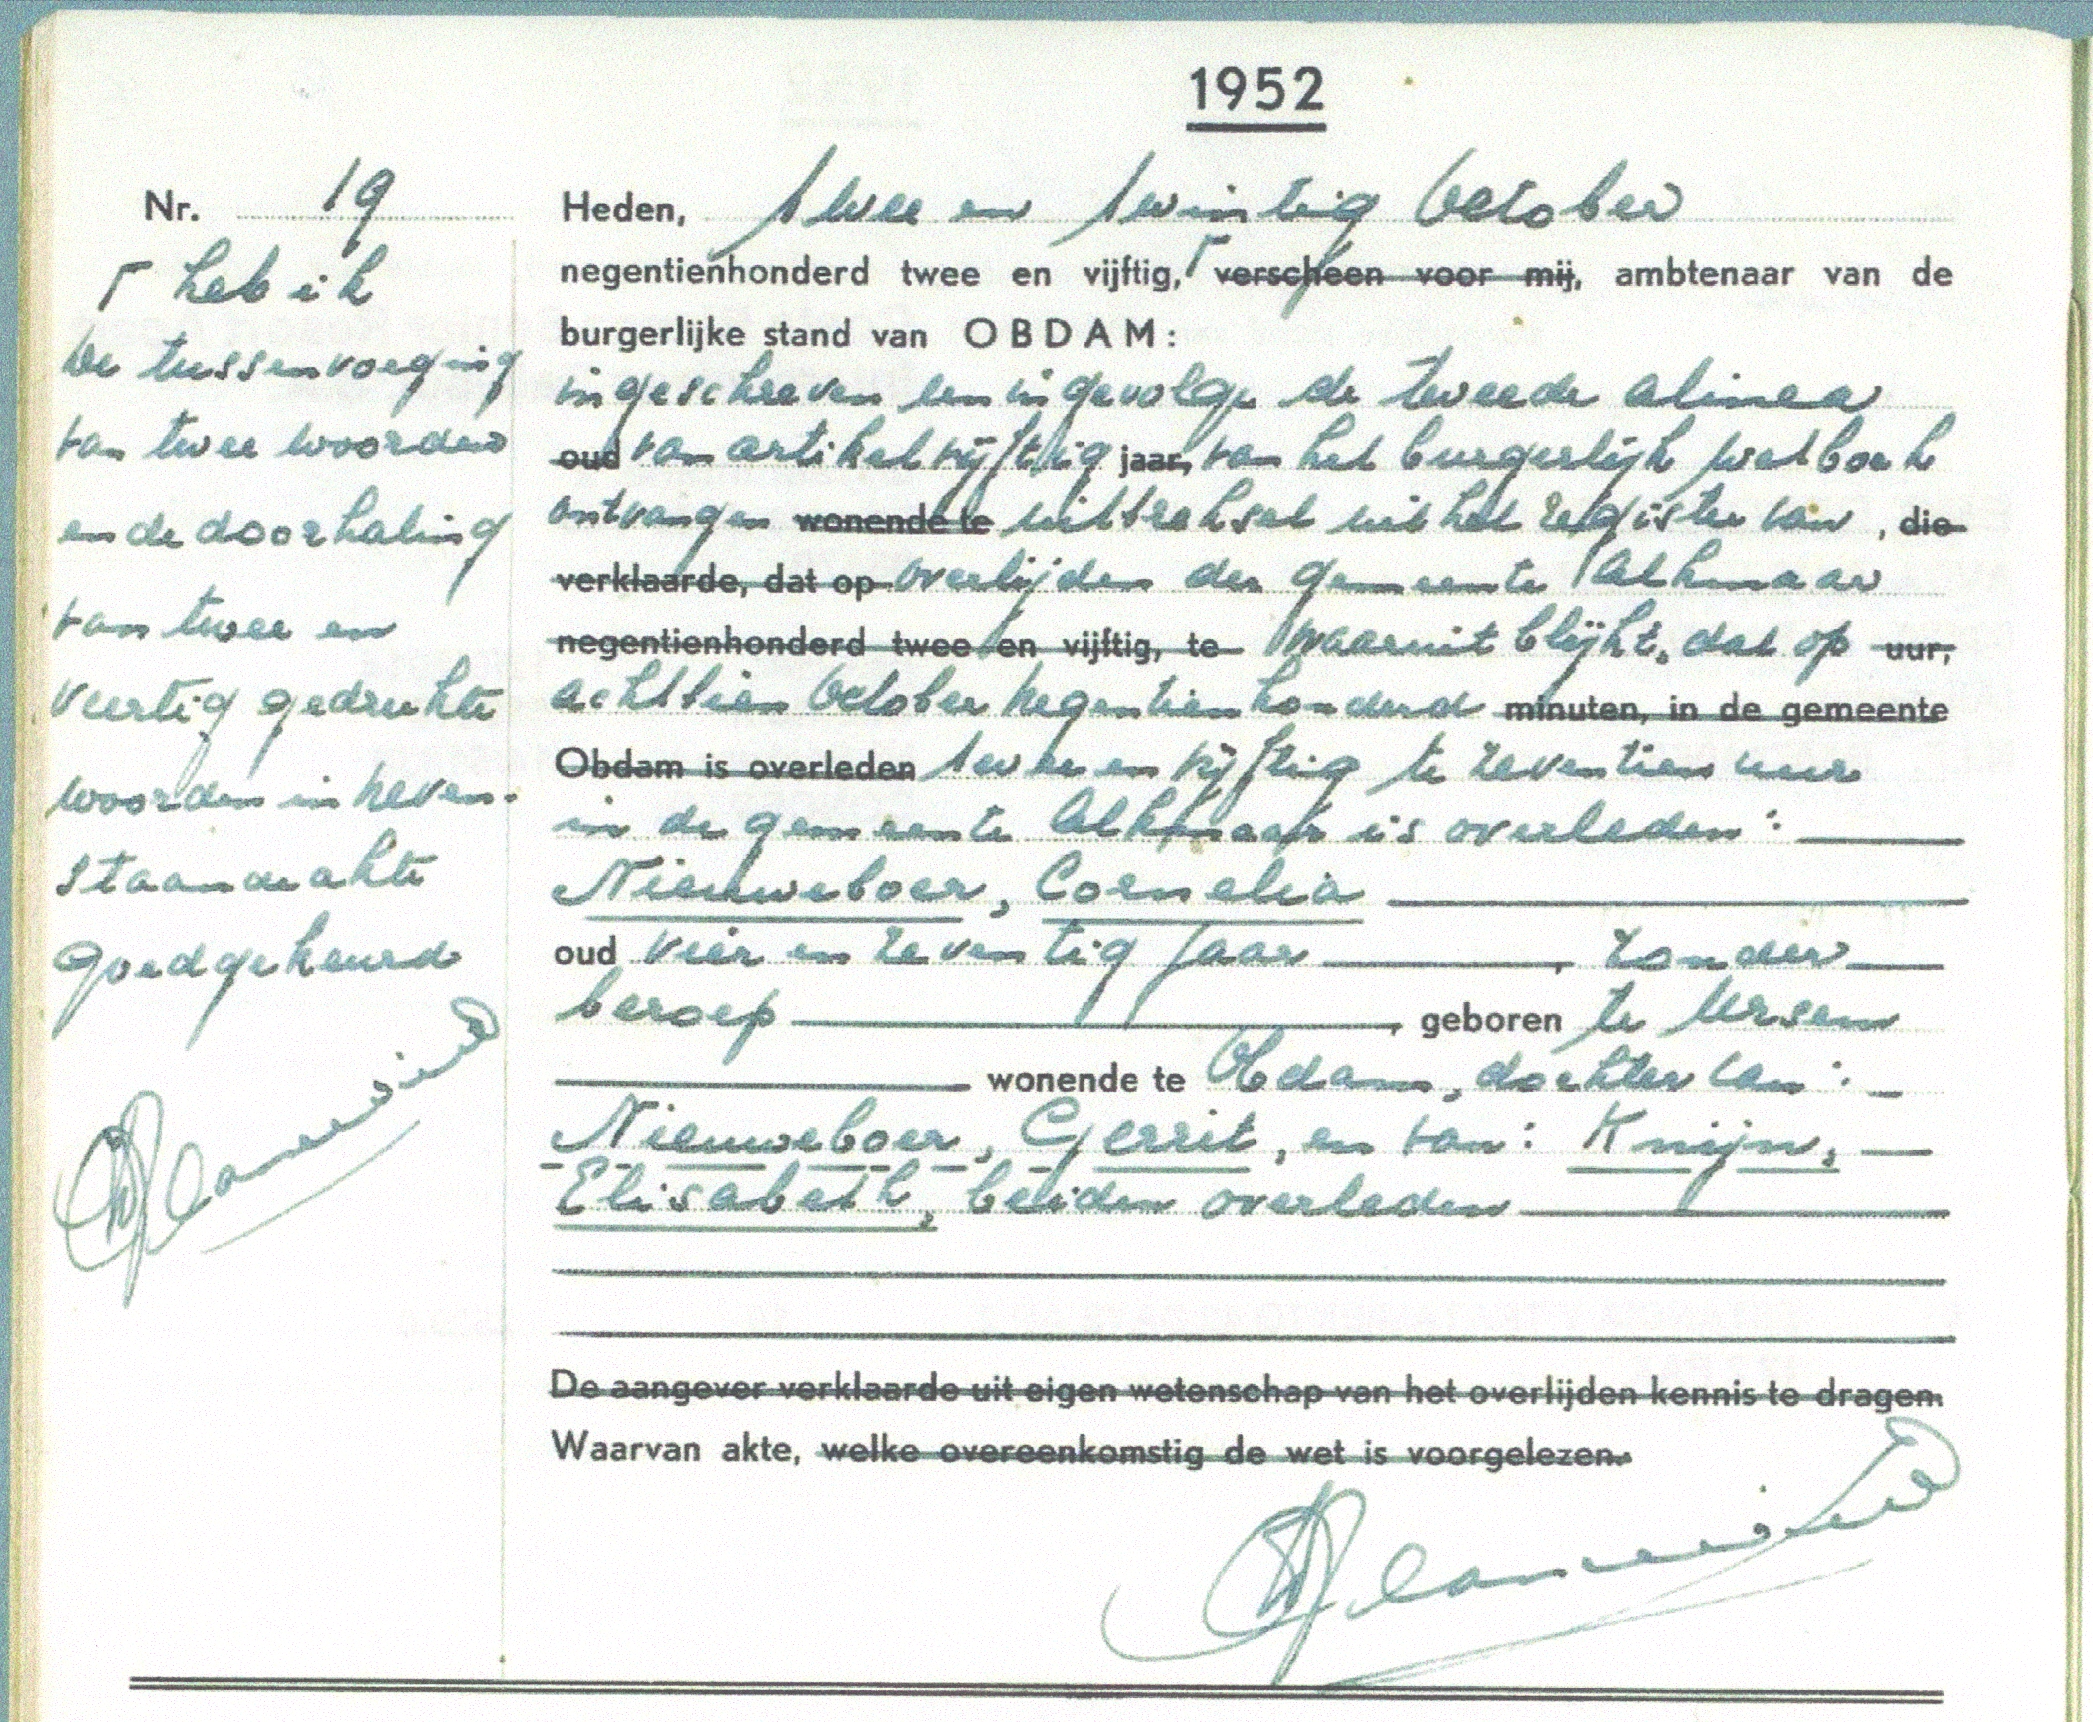 1952
Nr. 19
Heden, twee en twintig October
negentienhonderd twee en vijftig, Γ verscheen voor mij, ambtenaar van de
burgerlijke stand van OBDAM:
ingeschreven een ingevolge de tweede alinea
oud van artikel vijftig jaar, van het burgerlijk wetboek
ontvangen wonende te uittreksel uit het register van , die
verklaarde, dat op overlijden der gemeente Alkmaar
negentienhonderd twee en vijftig, te waaruit blijkt, dat op uur,
achttien October negentienhonderd minuten, in de gemeente
Obdam is overleden twee en vijftig te zeventien uur
in de gemeente Alkmaar is overleden:
Nieuweboer, Cornelia
oud vier en zeventig jaar, zonder
beroep, geboren te Ursem
wonende te Obdam, dochter van:
Nieuweboer, Gerrit, en van: Knijn,
Elisabeth, beiden overleden
De aangever verklaarde uit eigen wetenschap van het overlijden kennis te dragen.
Waarvan akte, welke overeenkomstig de wet is voorgelezen.
Γ heb ik
De tussenvoeging
van twee woorden
en de doorhaling
van twee en
veertig gedrukte
woorden in neven-
staande akte
goedgekeurd